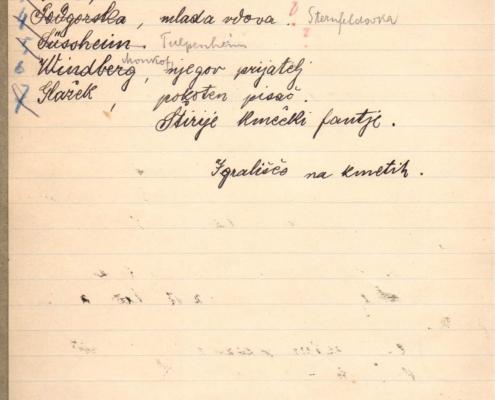 4 Podgorska, mlada vdova. ? Sternfeldovka
5 Süssheim. Tulpenheim ?
6 Windberg, njegov prijatelj
7 Glazek, pokoten pisač.
Štirije kmečki fantje.
Igrališčo na kmetih.